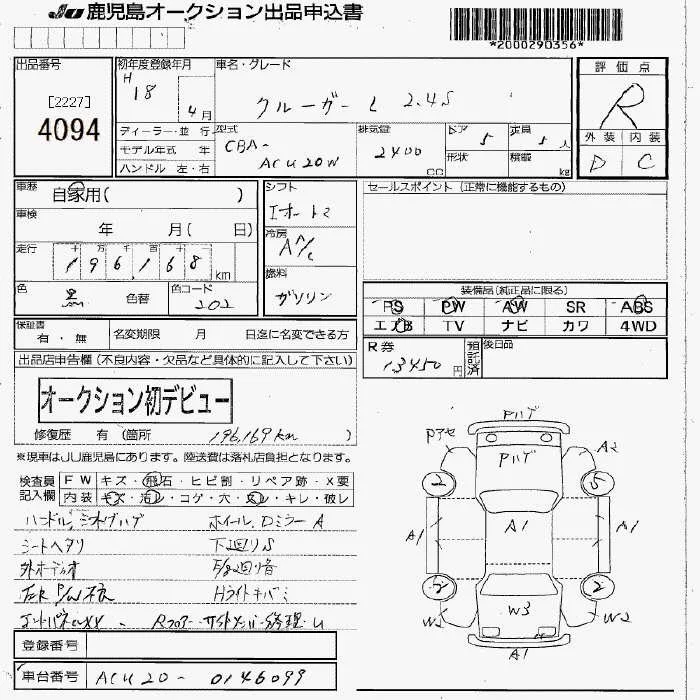 JU 鹿児島オークション出品申込書
*2000290356*
出品番号
[2227]
4094
初年度登録年月
H
18
4月
車名・グレード
クルーガー L 2.4S
評価点
R
外装 内装
D C
ディーラー・並 行
モデル年式 年
ハンドル 左・右
型式
CBA-
ACU20W
排気量
2400
CC
ドア 5
形状
定員 5人
積載 kg
車歴
自家用( )
車検
年 月( 日)
走行
十 万 千 百 十
196,168 km
色
黒 色替
色コード
202
シフト
エオートマ
冷房
A/c
燃料
ガソリン
セールスポイント (正常に機能するもの)
装備品(純正品に限る)
PS PW AW SR ABS
エアB TV ナビ カワ 4WD
保証書
有・無
名変期限 月 日迄に名変できる方
R券
13450円
預託済
後日品
出品店申告欄(不良内容・欠品など具体的に記入して下さい)
オークション初デビュー
修復歴 有(箇所 196,169km )
※現車はJU鹿児島にあります。陸送費は落札店負担となります。
検査員記入欄
FW キズ・飛石・ヒビ割・リペア跡・X要
内装 キズ・汚レ・コゲ・穴・スレ・キレ・破レ
ホイール,Dミラー A
シートヘタリ
下廻りS
Hライトキバミ
登録番号
車台番号 ACU20-0146099
Pハゲ
Pハゲ
A2
2
5
A1
A1
A1
2
2
W2
W3
W2
A1